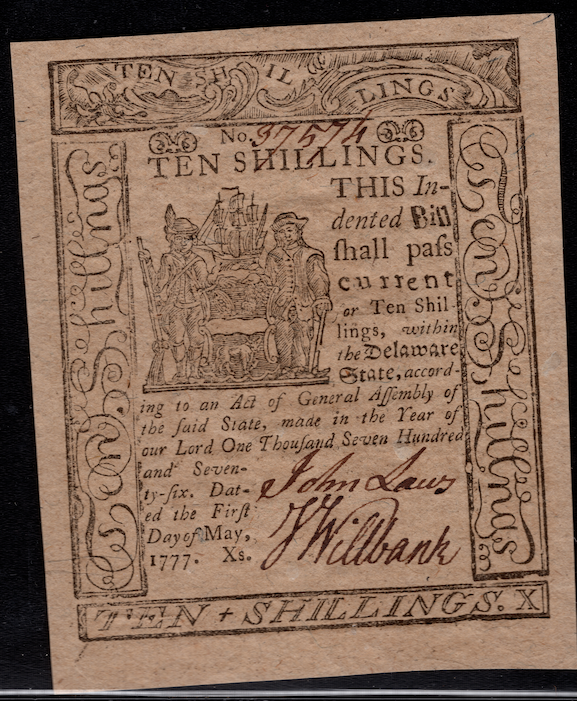 TEN SHILLINGS
No. 37574
TEN SHILLINGS.
THIS In-
dented Bill
ſhall paſs
current
or Ten Shil-
lings, within
the Delaware
State, accord-
ing to an Act of General Aſſembly of
the ſaid State, made in the Year of
our Lord One Thouſand Seven Hundred
and Seven-
ty-six. Dat-
ed the Firſt
Day of May,
1777. Xs.
John Laws
J Willbank
Ten Shillings
Ten Shillings
TEN + SHILLINGS. X